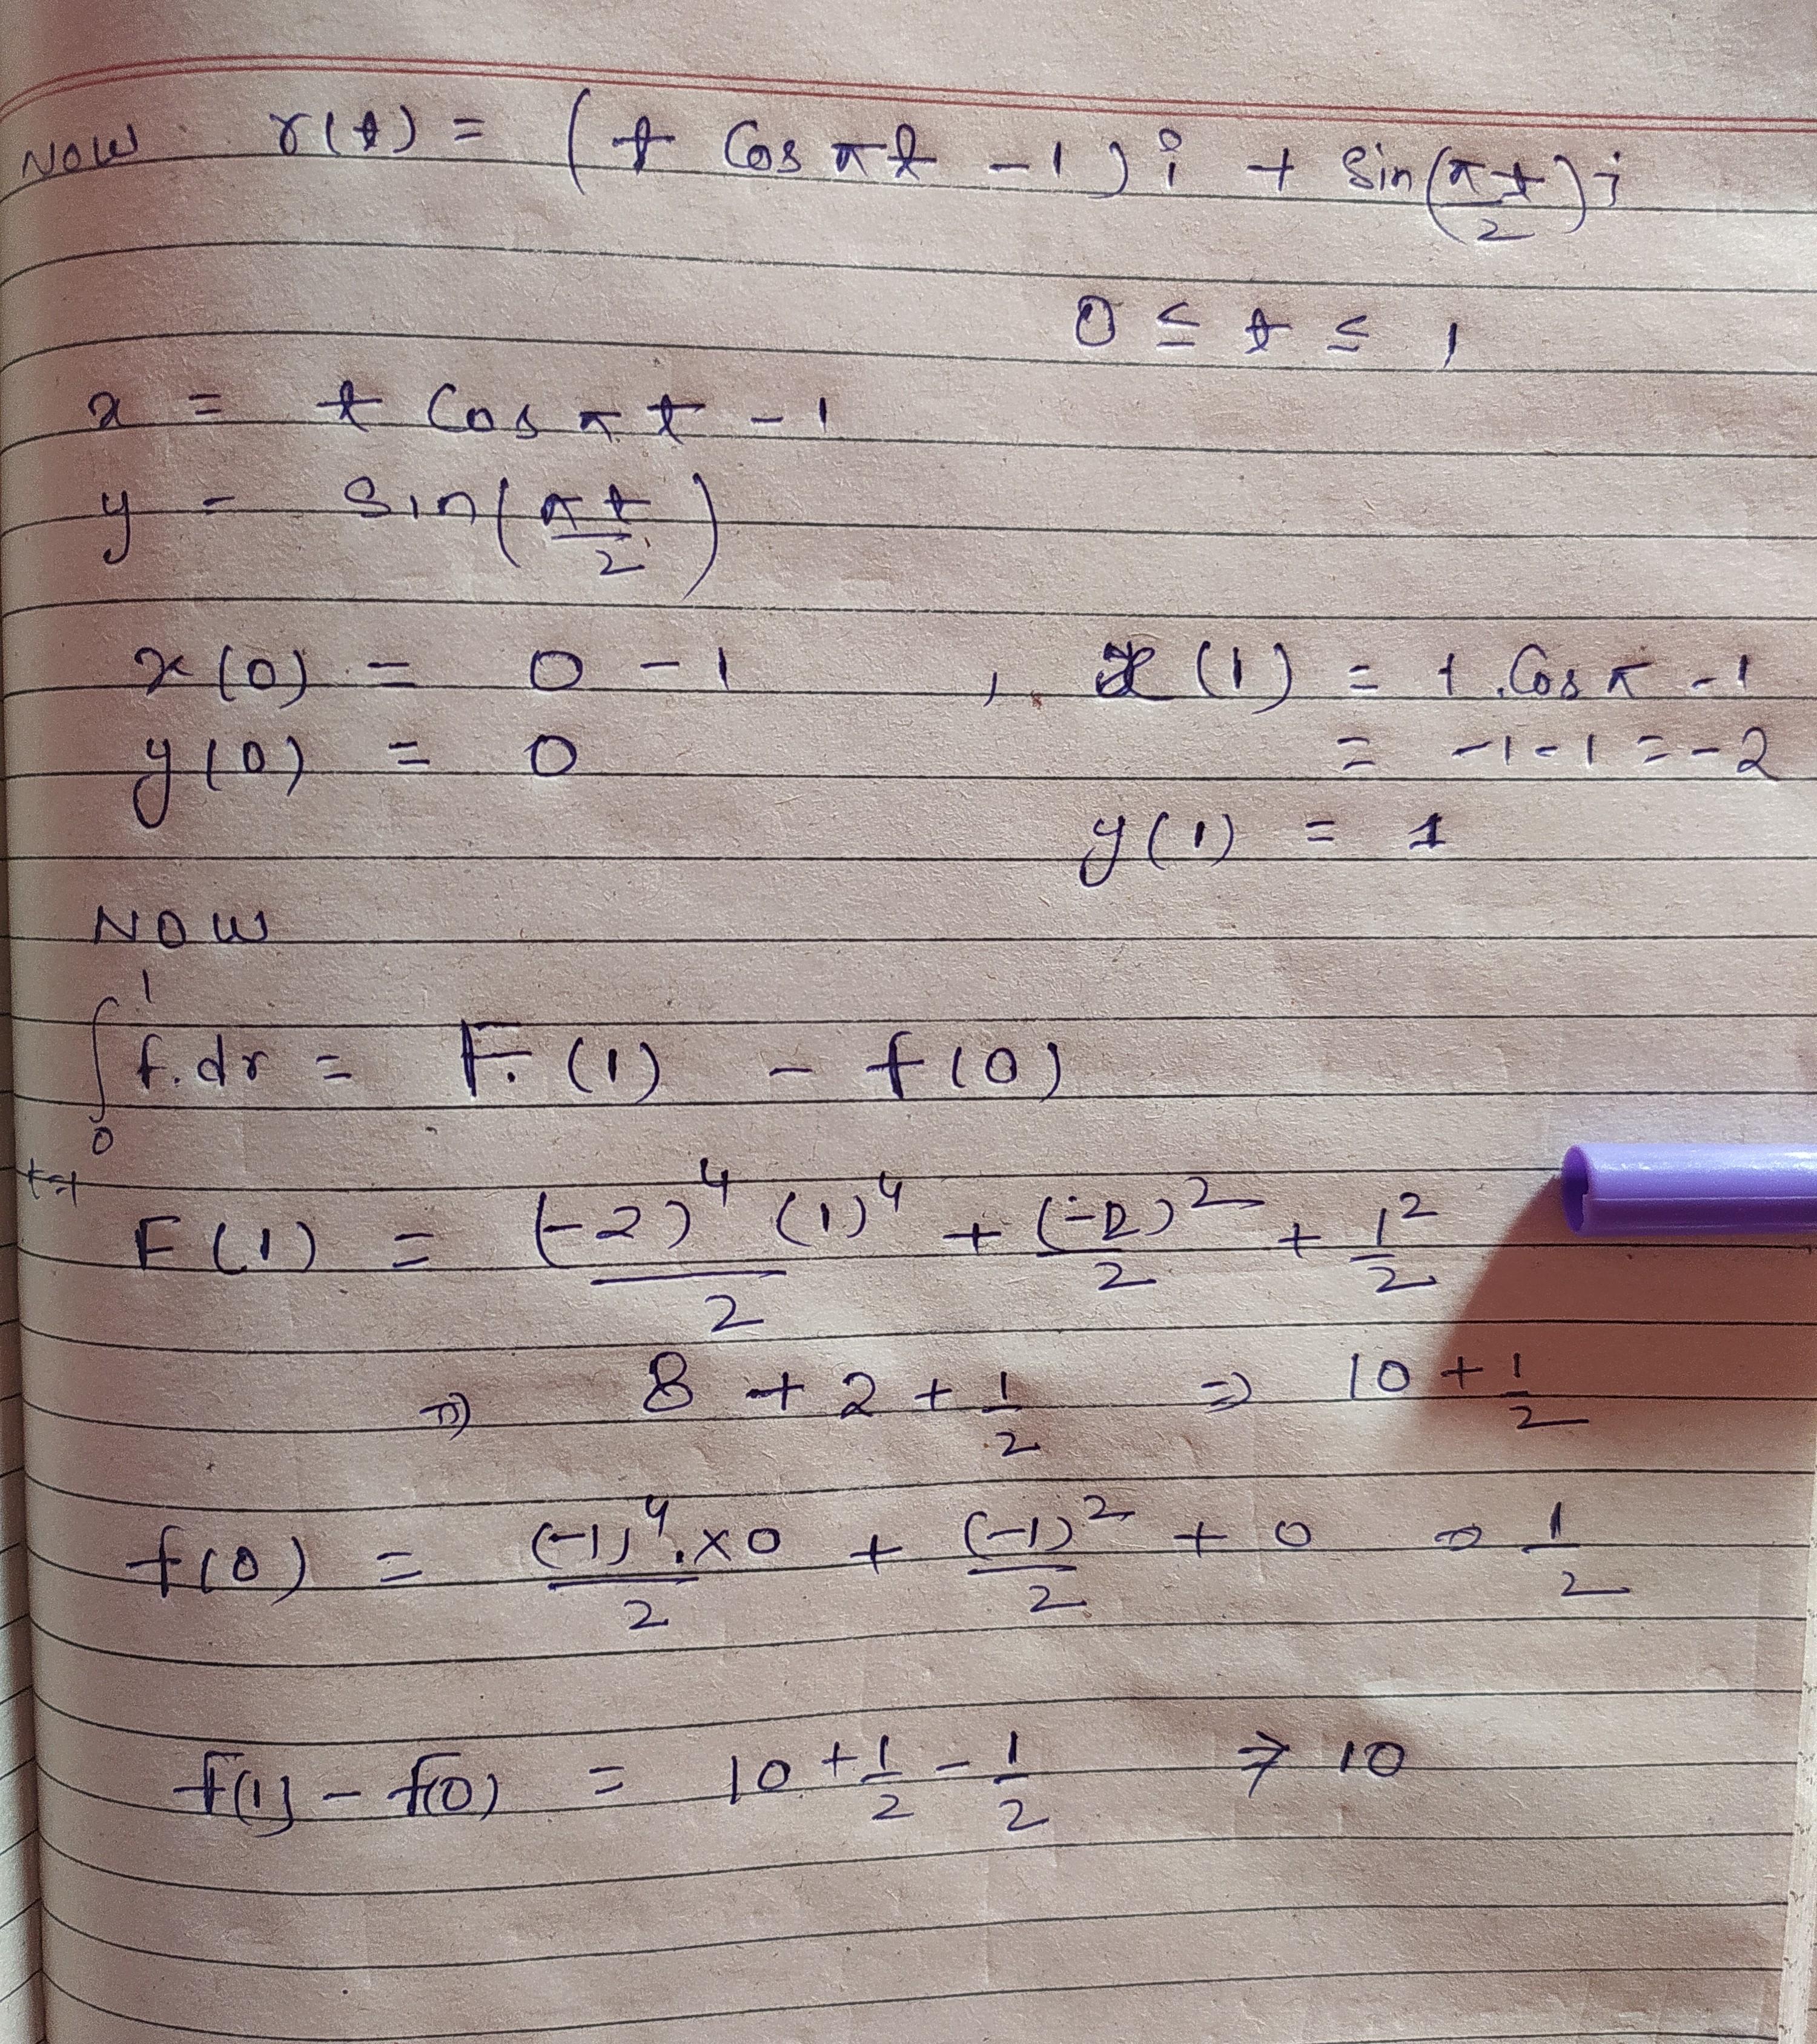 Now r(t) = (t Cos πt - 1) i + Sin(πt/2) j
0 ≤ t ≤ 1
x = t Cos πt - 1
y = Sin(πt/2)
x(0) = 0 - 1 , x(1) = 1.Cos π - 1
y(0) = 0 = -1-1 = -2
y(1) = 1
NOW
∫₀¹ f.dr = F.(1) - f(0)
t=1
F(1) = (-2)⁴ (1)⁴/2 + (-2)²/2 + 1²/2
⇒ 8 + 2 + 1/2 ⇒ 10 + 1/2
f(0) = (-1)⁴.×0/2 + (-1)²/2 + 0 ⇒ 1/2
f(1) - f(0) = 10 + 1/2 - 1/2 ⇒ 10